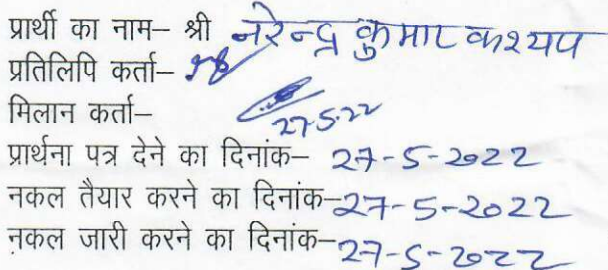 प्रार्थी का नाम– श्री नरेन्द्र कुमार कश्यप
प्रतिलिपि कर्ता–
मिलान कर्ता–
27-5-22
प्रार्थना पत्र देने का दिनांक– 27-5-2022
नकल तैयार करने का दिनांक–27-5-2022
नकल जारी करने का दिनांक–27-5-2022